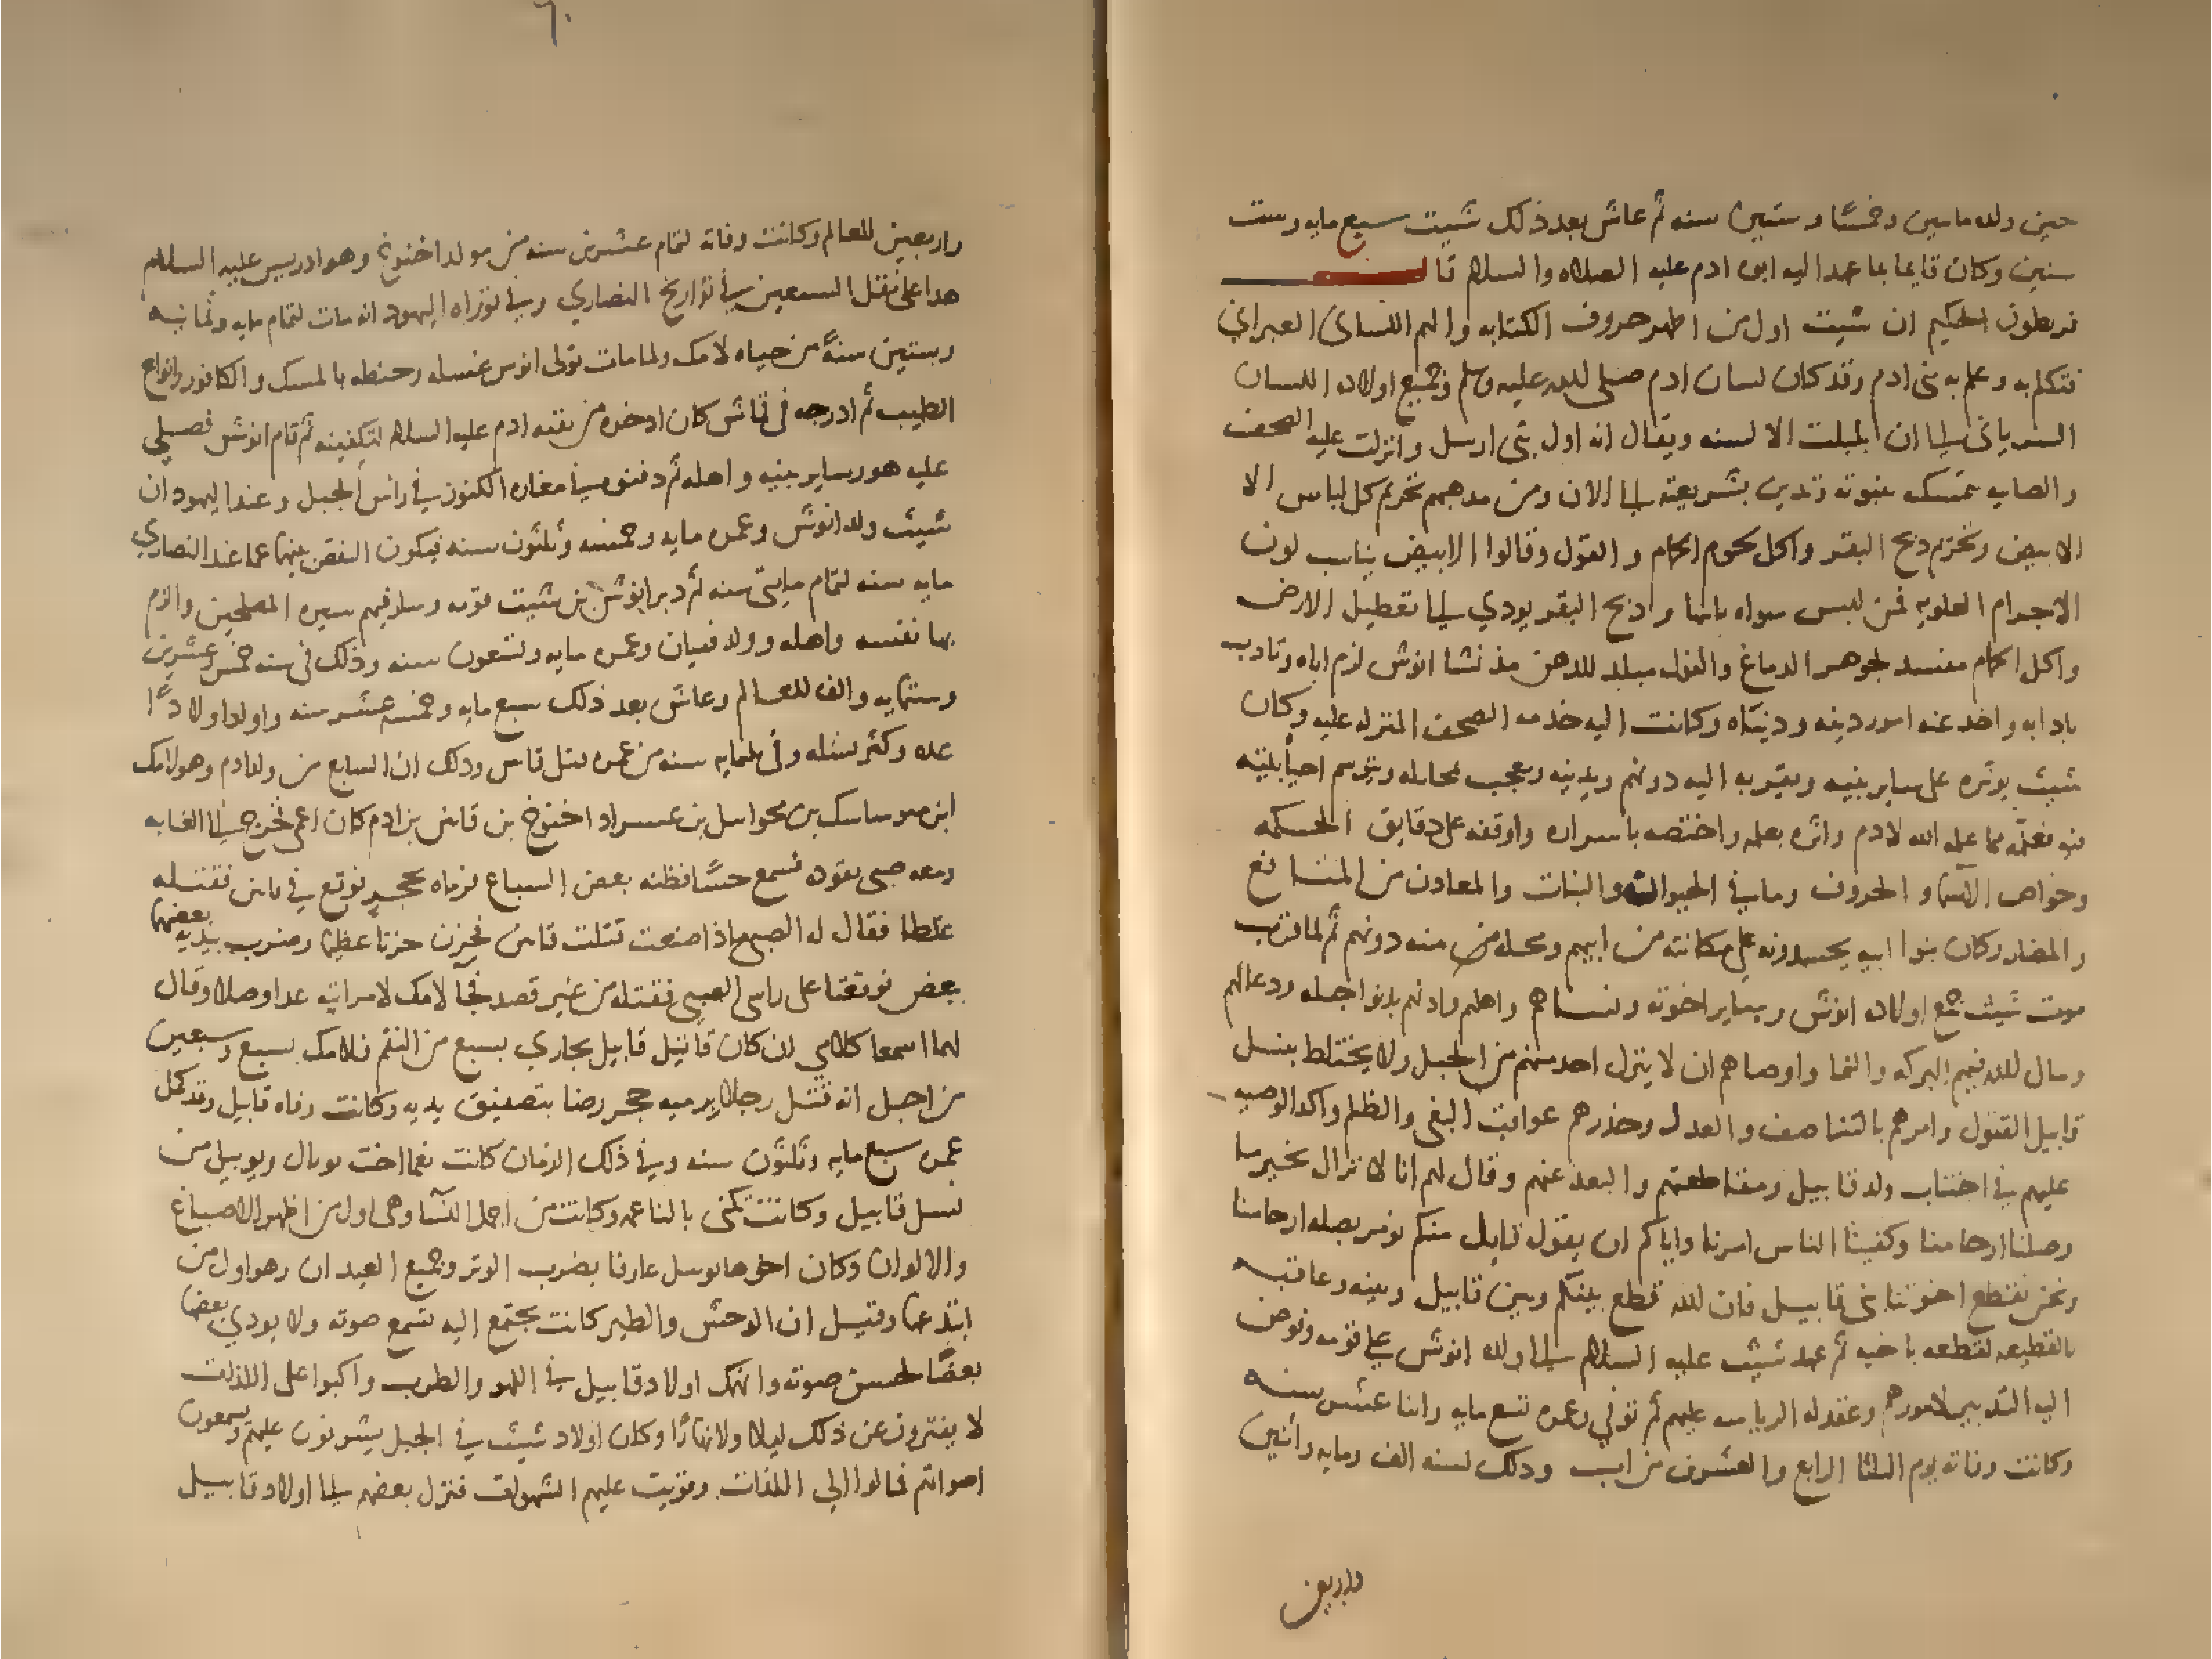 حين ولد ماىىىن وخمسًا وستين سنه ثم عاش بعد ذلك شيت سبع مايه وست
سنين وكان قايما بما عهد اليه ابوه ادم عليه الصلاه والسلام قال
الحكيم ان شيت اول من اظهر حروف الكتابه والهم اللسان العبراني
فتكلم به وعلم به بنى ادم وقد كان لسان ادم صلى الله عليه وسلم وجميع اولاده اللسان
السريانى الى ان تبلبلت الالسنه ويقال انه اول نبى ارسل وانزلت عليه الصحف
والصابه تمسك بنبوته وتدين بشريعته الى الان ومن مدهبهم تحريم كل لباس الا
الابيض وتحريم دبح البقر واكل لحوم الحمام والفول وقالوا الابيض يناسب لون
الاجرام العلويه فمن لبس سواه باينها ودبح البقر يودي الى تعطيل الارض
واكل الحمام مفسد لجوهر الدماغ والفول مبلد للدهن مذ نشا انوش لزم اباه وتادب
بادابه واخد عنه امور دينه ودنياه وكانت اليه خدمه الصحف المنزله عليه وكان
شيث يوثره على ساير بنيه ويقربه اليه دونهم ويدنيه ويعجب
مما علمه الله لادم واثره بعلمه واختصه باسراره واوقفه على دقايق الحكمه
وخواص الاسما والحروف وما في الحيوان والنبات والمعادن من المنافع
والمضار وكان بنوا ابيه يحسدونه على مكانته من ابيهم ومحله منه دونهم ثم لما قرب
موت شيث جمع اولاده انوش وساير اخوته ونساهم واهلهم واذنهم بدنو اجله ودعا لهم
وسال الله فيهم البركه والنما واوصاهم ان لا ينزل احد منهم من الجبل ولا يختلط بنسل
قابيل القتول وامرهم بالتناصف والعدل وحذرهم عواقب البغي والظلم واكد الوصيه
عليهم في اجتناب ولد قابيل ومقاطعتهم والبعد عنهم وقال لهم انا لا نزال بخير ما
وصلنا ارحامنا وكفينا الناس امرنا واياكم ان يقول قايل منكم نومر بصله ارحامنا
ونحن نقطع اخوتنا بنى قابيل فان الله قطع بينكم وبين قابيل وبنيه وعاقبه
بالقطيعه لقطعه باخيه ثم عهد شيث عليه السلام الى ولده انوش على قومه وفوض
اليه التدبير لامورهم وعقد له الرياسه عليهم ثم توفي وعمره تسع مايه واثنا عشر سنه
وكانت وفاته يوم الثلثا الرابع والعشرين من اب وذلك لسنه الف ومايه واثنين
واربعين
٦٠
واربعين للعالم وكانت وفاته لتمام عشرين سنه من مولد اخنوخ وهو ادريس عليه السلام
هدا على نقل السبعين في تواريخ النصاري وفي توراه اليهود انه مات لتمام مايه وثمانيه
وستين سنةً من حياه لامك ولما مات تولى انوش غسله وحنطه بالمسك والكافور وانواع
الطيب ثم ادرجه فى قماش كان ادخره من بقيه ادم عليه السلام لتكفينه ثم قام انوش فصلى
عليه هو وساير بنيه واهله ثم دفنوه في مغاره الكنوز في راس الجبل وعند اليهود ان
شيث ولد انوش وعمره مايه وخمسه وثلثون سنه فيكون النقص بينهما عما عند النصاري
مايه سنه لتمام مايتى سنه ثم دبر انوش بن شيت قومه وسار فيهم سيره المصلحين والزم
بها نفسه واهله وولد قينان وعمره مايه وتسعون سنه وذلك فى سنه خمس وعشرين
وستمايه والف للعالم وعاش بعد ذلك سبع مايه وخمسه عشر سنه واولد اولادًا
عده وكثر نسله وفى ثلثمايه سنه من عمره قتل قاىن ودلك ان السابع من ولد ادم وهو لامك
ابن ىن اخنوخ بن قاىن بن ادم كان اعمى فخرج الى الغابه
ومعه صبى يقوده فسمع حسًا فظنه بعض السباع فرماه بحجرٍ فوقع في قاىن فقتله
غلطا فقال له الصبى ماذا صنعت قتلت قاىن فحزن حزنا عظيما وضرب بيديه بعضها
ببعض فوقعتا على راس الصبى فقتله من غير قصد فجا لامك لامراتيه عدا وصلا وقال
لهما اسمعا كلامي ان كان قاتيل قابيل يجازي بسبع من النقم فلامك بسبع وسبعين
من اجل انه قتل رجلا يرميه حجر رضا بتصفيق يديه وكانت وفاه قابيل وقد كمل
عمره سبع مايه وثلثون سنه وفي ذلك الزمان كانت نعما اخت توبال ويوبيل من
نسل قابيل وكانت تكنى بالناعمه وكانت من اجمل النسا وهى اول من اظهر الاصباغ
والالوان وكان اخوها عارفا بضرب الوتر وجميع العيدان وهو اول من
ابتدعها وقيل ان الوحش والطير كانت تجتمع اليه تسمع صوته ولا يودي بعضها
بعضًا لحسن صوته وانهمك اولاد قابيل في اللهو والطرب واكبوا على اللذات
لا يفترون عن ذلك ليلا ولا نهارًا وكان اولاد شيث في الجبل يشرفون عليهم ويسمعون
اصواتهم فمالوا الى اللذات وقويت عليهم الشهوات فنزل بعضهم الى اولاد قابيل